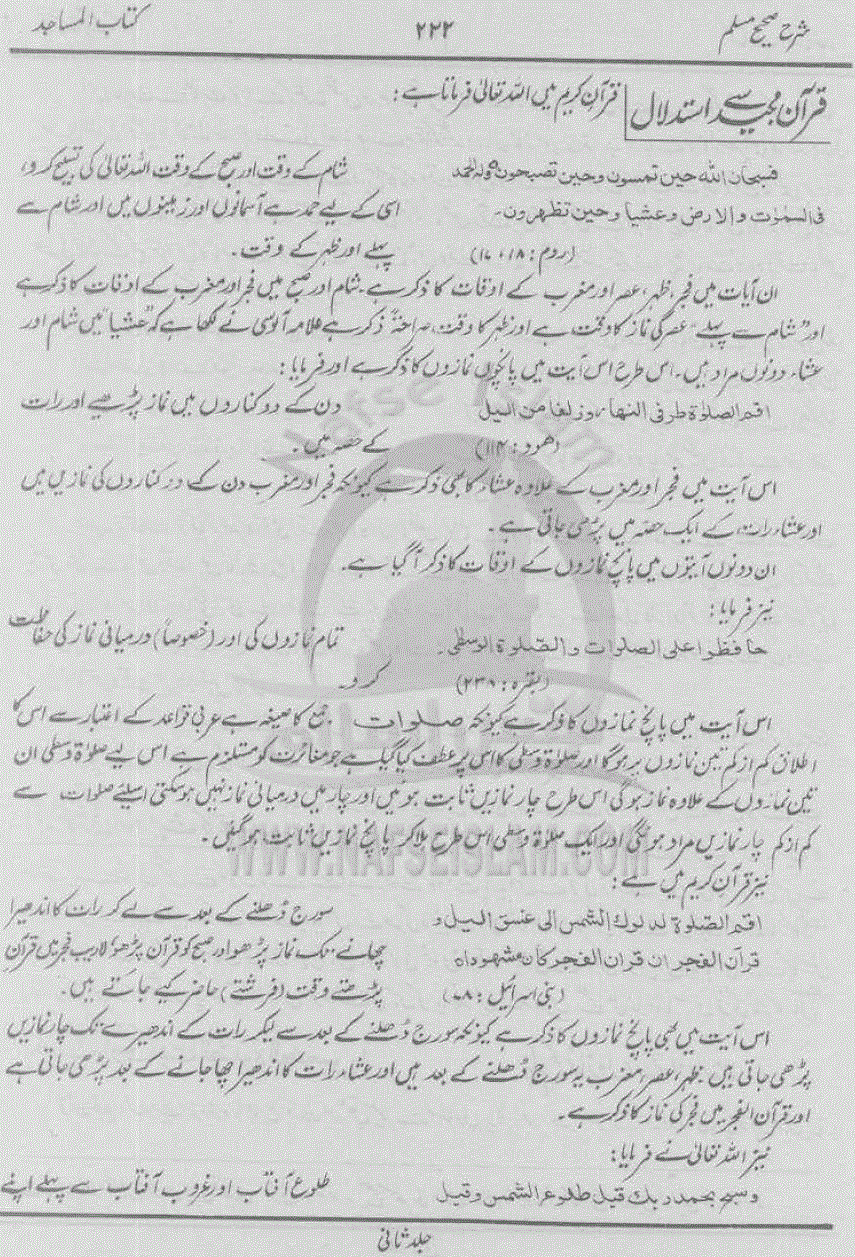 شرح صحیح مسلم ۲۲۲ کتاب المساجد
قرآن مجید سے استدلال قرآن کریم میں اللہ تعالیٰ فرماتا ہے:
فسبحان الله حین تمسون وحین تصبحون ہ ولہ الحمد شام کے وقت اور صبح کے وقت اللہ تعالیٰ کی تسبیح کرو،
فی السمٰوٰت والارض وعشیا وحین تظہرون۔ اسی کے لیے حمد ہے آسمانوں اور زمینوں میں اور شام سے
(روم: ۱۸، ۱۷) پہلے اور ظہر کے وقت۔
ان آیات میں فجر، ظہر، عصر اور مغرب کے اوقات کا ذکر ہے۔ شام اور صبح میں فجر اور مغرب کے اوقات کا ذکر ہے
اور "شام سے پہلے" عصر کی نماز کا وقت ہے اور ظہر کا وقت صراحتہً ذکر ہے علامہ آلوسی نے لکھا ہے کہ "عشیا" میں شام اور
عشاء دونوں مراد ہیں۔ اس طرح اس آیت میں پانچوں نمازوں کا ذکر ہے اور فرمایا:
اقم الصلوٰۃ طرفی النهار وزلفا من الیل دن کے دو کناروں میں نماز پڑھیے اور رات
(هود: ۱۱۴) کے حصہ میں۔
اس آیت میں فجر اور مغرب کے علاوہ عشاء کا بھی ذکر ہے کیونکہ فجر اور مغرب دن کے دو کناروں کی نمازیں ہیں
اور عشاء رات کے ایک حصہ میں پڑھی جاتی ہے۔
ان دونوں آیتوں میں پانچ نمازوں کے اوقات کا ذکر آگیا ہے۔
نیز فرمایا:
حافظوا علی الصلوات والصّلوۃ الوسطٰی۔ تمام نمازوں کی اور (خصوصاً) درمیانی نماز کی حفاظت
(بقرہ: ۲۳۸) کرو۔
اس آیت میں پانچ نمازوں کا ذکر ہے کیونکہ صلوات جمع کا صیغہ ہے عربی قواعد کے اعتبار سے اس کا
اطلاق کم از کم تین نمازوں پر ہوگا اور صلوٰۃ وسطی کا اس پر عطف کیا گیا ہے جو مغائرت کو مستلزم ہے اس لیے صلوٰۃ وسطی ان
تین نمازوں کے علاوہ نماز ہوگی اس طرح چار نمازیں ثابت ہوئیں اور چار میں درمیانی نماز نہیں ہوسکتی اسلئے صلوات سے
کم از کم چار نمازیں مراد ہونگی اور ایک صلوٰۃ وسطی اس طرح ملا کر پانچ نمازیں ثابت ہوگئیں۔
نیز قرآن کریم میں ہے:
اقم الصّلوۃ لدلوك الشمس الی غسق الیل و سورج ڈھلنے کے بعد سے لے کر رات کا اندھیرا
قرآن الفجر ان قران الفجر کان مشهودا ہ چھانے تک نماز پڑھو اور صبح کو قرآن پڑھو لاریب فجر میں قرآن
(بنی اسرائیل: ۷۸) پڑھتے وقت (فرشتے) حاضر کیے جاتے ہیں۔
اس آیت میں بھی پانچ نمازوں کا ذکر ہے کیونکہ سورج ڈھلنے کے بعد سے لیکر رات کے اندھیرے تک چار نمازیں
پڑھی جاتی ہیں۔ ظہر، عصر، مغرب یہ سورج ڈھلنے کے بعد ہیں اور عشاء رات کا اندھیرا چھا جانے کے بعد پڑھی جاتی ہے
اور قرآن الفجر میں فجر کی نماز کا ذکر ہے۔
نیز اللہ تعالیٰ نے فرمایا:
وسبح بحمد ربك قبل طلوع الشمس وقبل طلوع آفتاب اور غروب آفتاب سے پہلے اپنے
جلد ثانی
Nafse Islam
WWW.NAFSEISLAM.COM